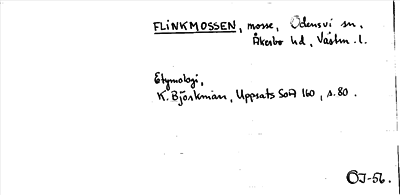 FLINKMOSSEN, mosse, Odensvi sn.
Åkerbo hd, Västm. l.
Etymologi,
K. Björkman, Uppsats SoA 160, s. 80.
ÖJ-56.